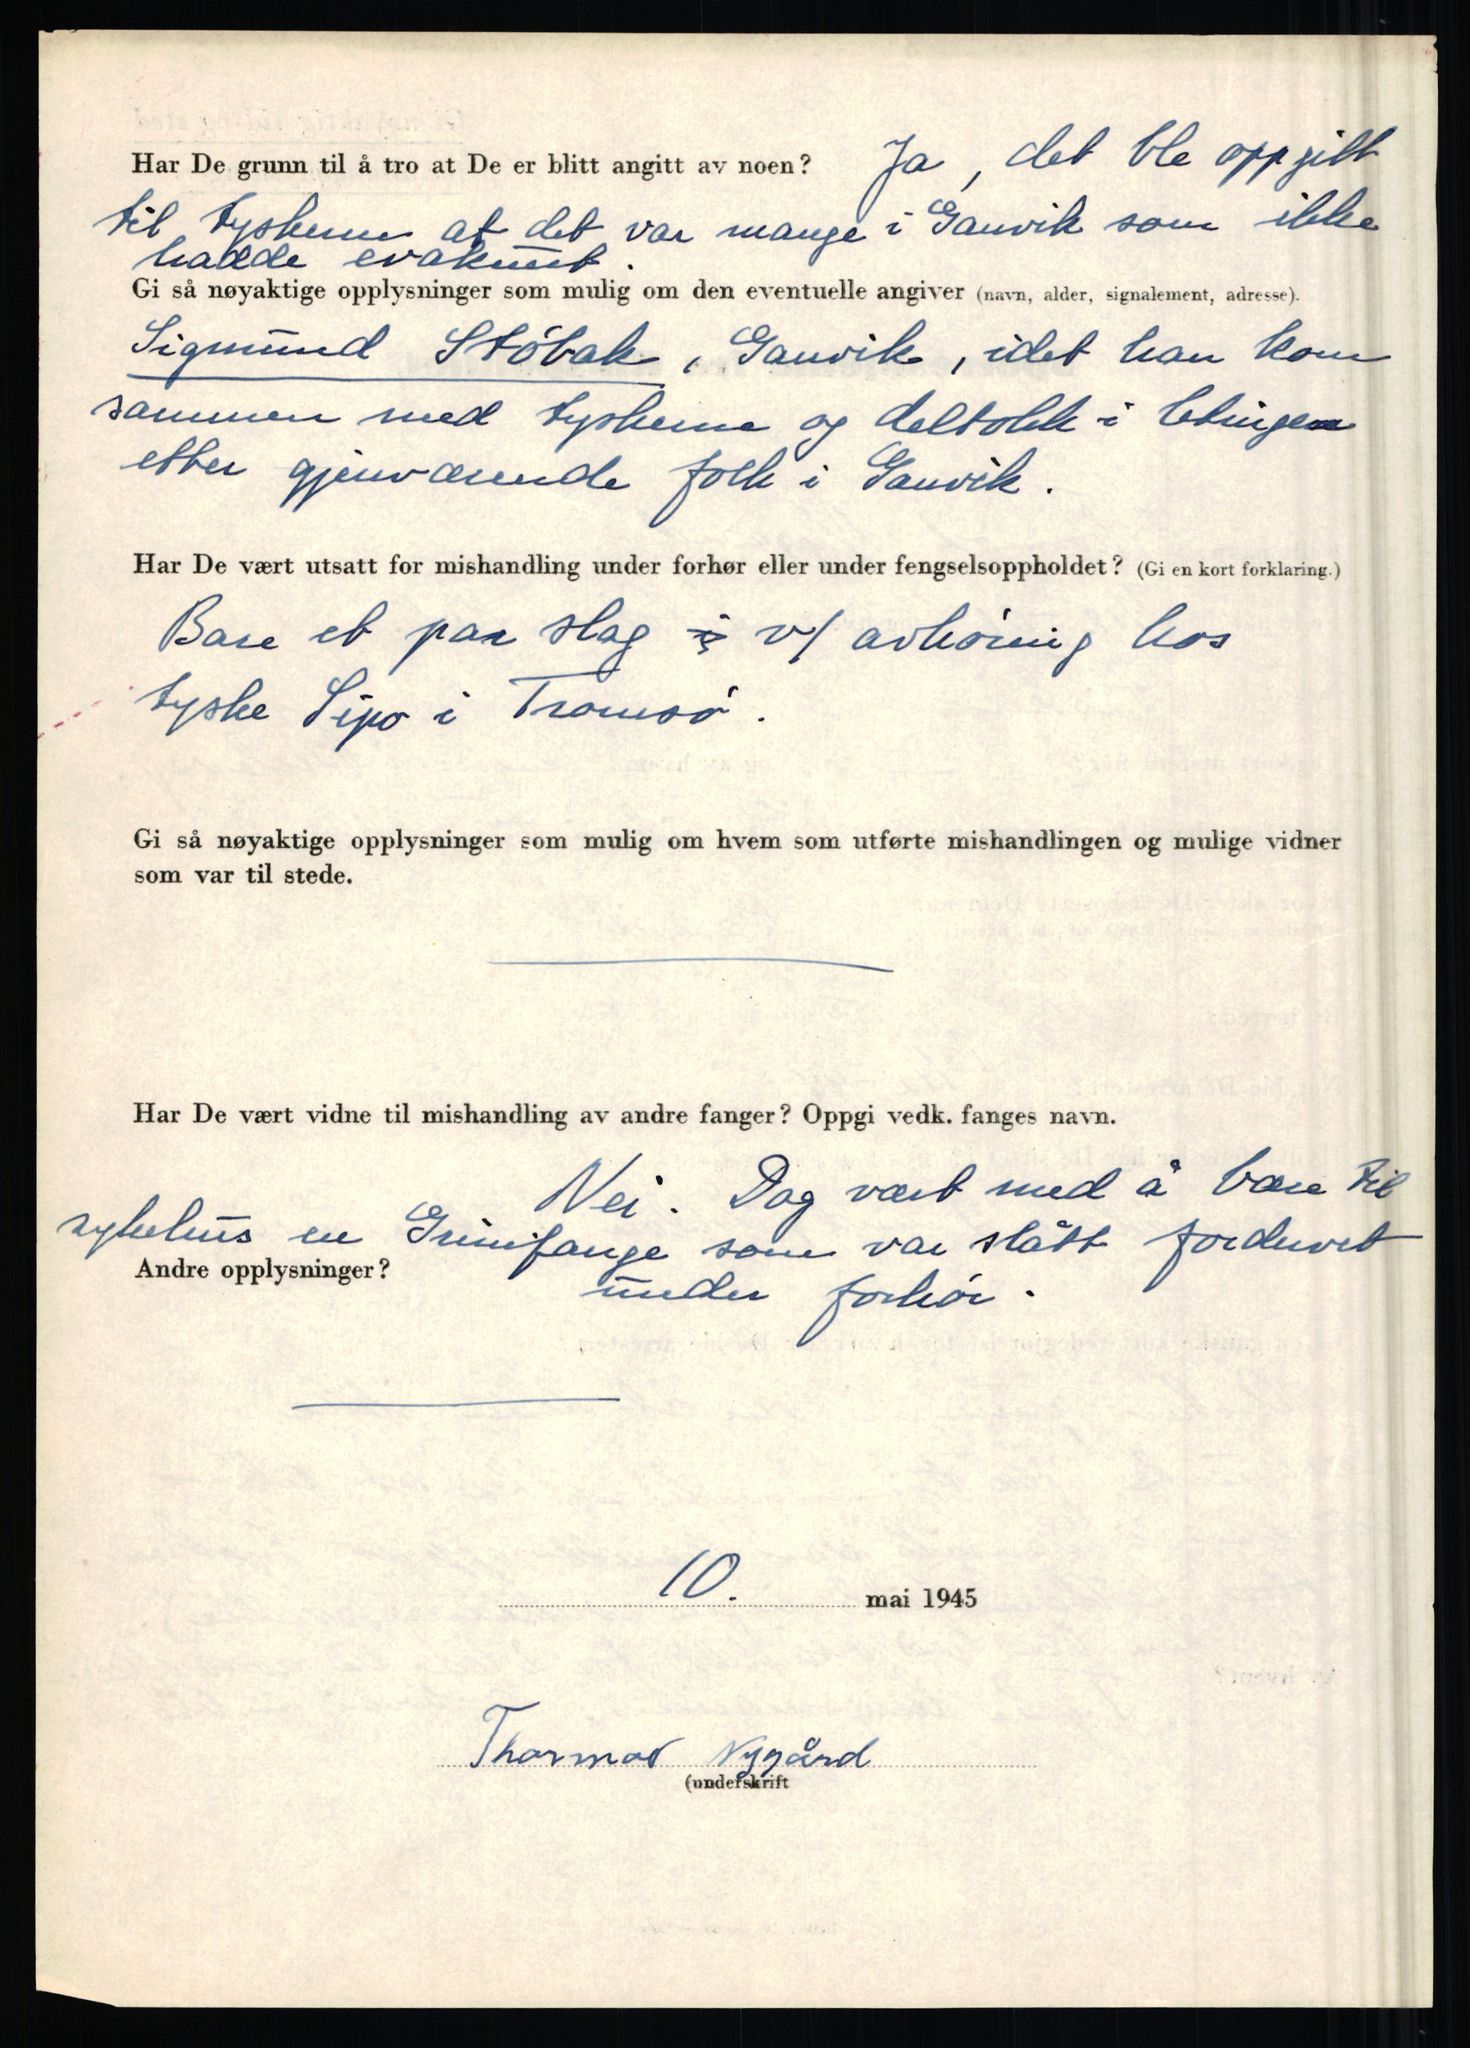 Har De grunn til å tro at De er blitt angitt av noen? Ja, det ble oppgitt
til tyskerne at det var mange i Ganvik som ikke
hadde evakuert.
Gi så nøyaktige opplysninger som mulig om den eventuelle angiver (navn, alder, signalement, adresse).
Sigmund Støbak, Ganvik, idet han kom
sammen med tyskerne og deltokk i letingen
etter gjenværende folk i Ganvik.
Har De vært utsatt for mishandling under forhør eller under fengselsoppholdet? (Gi en kort forklaring.)
Bare et par slag v/ avhöring hos
tyske Sipo i Tromsö.
Gi så nøyaktige opplysninger som mulig om hvem som utførte mishandlingen og mulige vidner
som var til stede.
Har De vært vidne til mishandling av andre fanger? Oppgi vedk. fanges navn.
Nei. Dog vært med å bære til
sykehus en Grinifange som var slått fordervet
Andre opplysninger?
under forhör.
10. mai 1945
Thormod Nygård
(underskrift